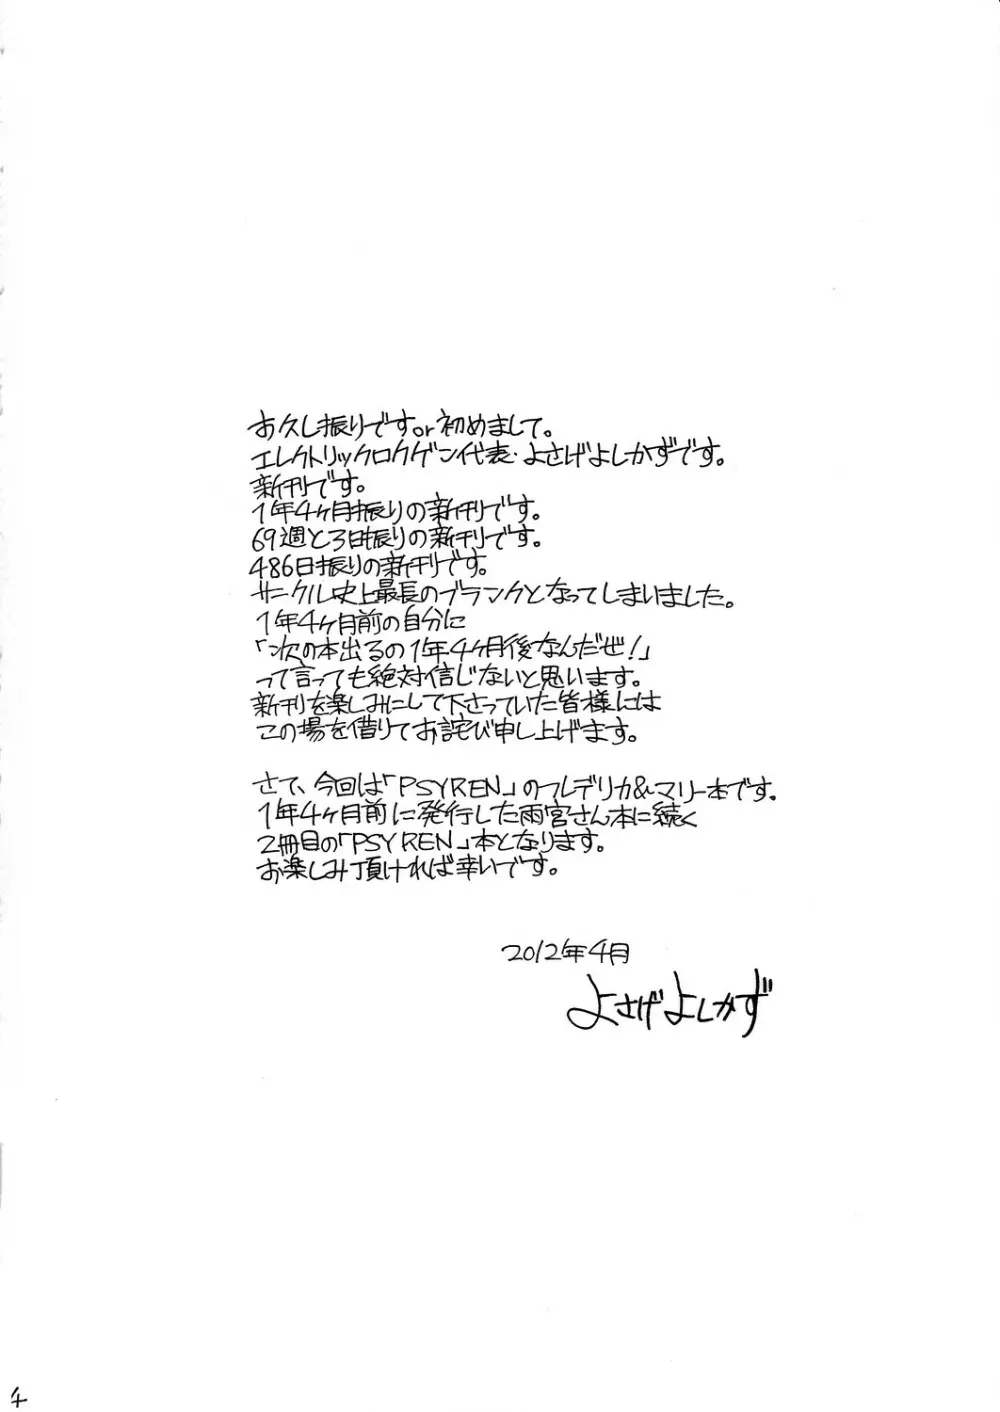 お久し振りです。or初めまして。
エレクトリックロクゲン代表・よさげよしかずです。
新刊です。
1年4ヶ月振りの新刊です。
69週と3日振りの新刊です。
486日振りの新刊です。
サークル史上最長のブランクとなってしまいました。
1年4ヶ月前の自分に
「次の本出るの1年4ヶ月後なんだぜ!」
って言っても絶対信じないと思います。
新刊を楽しみにして下さっていた皆様には
この場を借りてお詫び申し上げます。
さて、今回は「PSYREN」のフレデリカ&マリー本です。
1年4ヶ月前に発行した雨宮さん本に続く
2冊目の「PSYREN」本となります。
お楽しみ頂ければ幸いです。
2012年4月
よさげよしかず
4